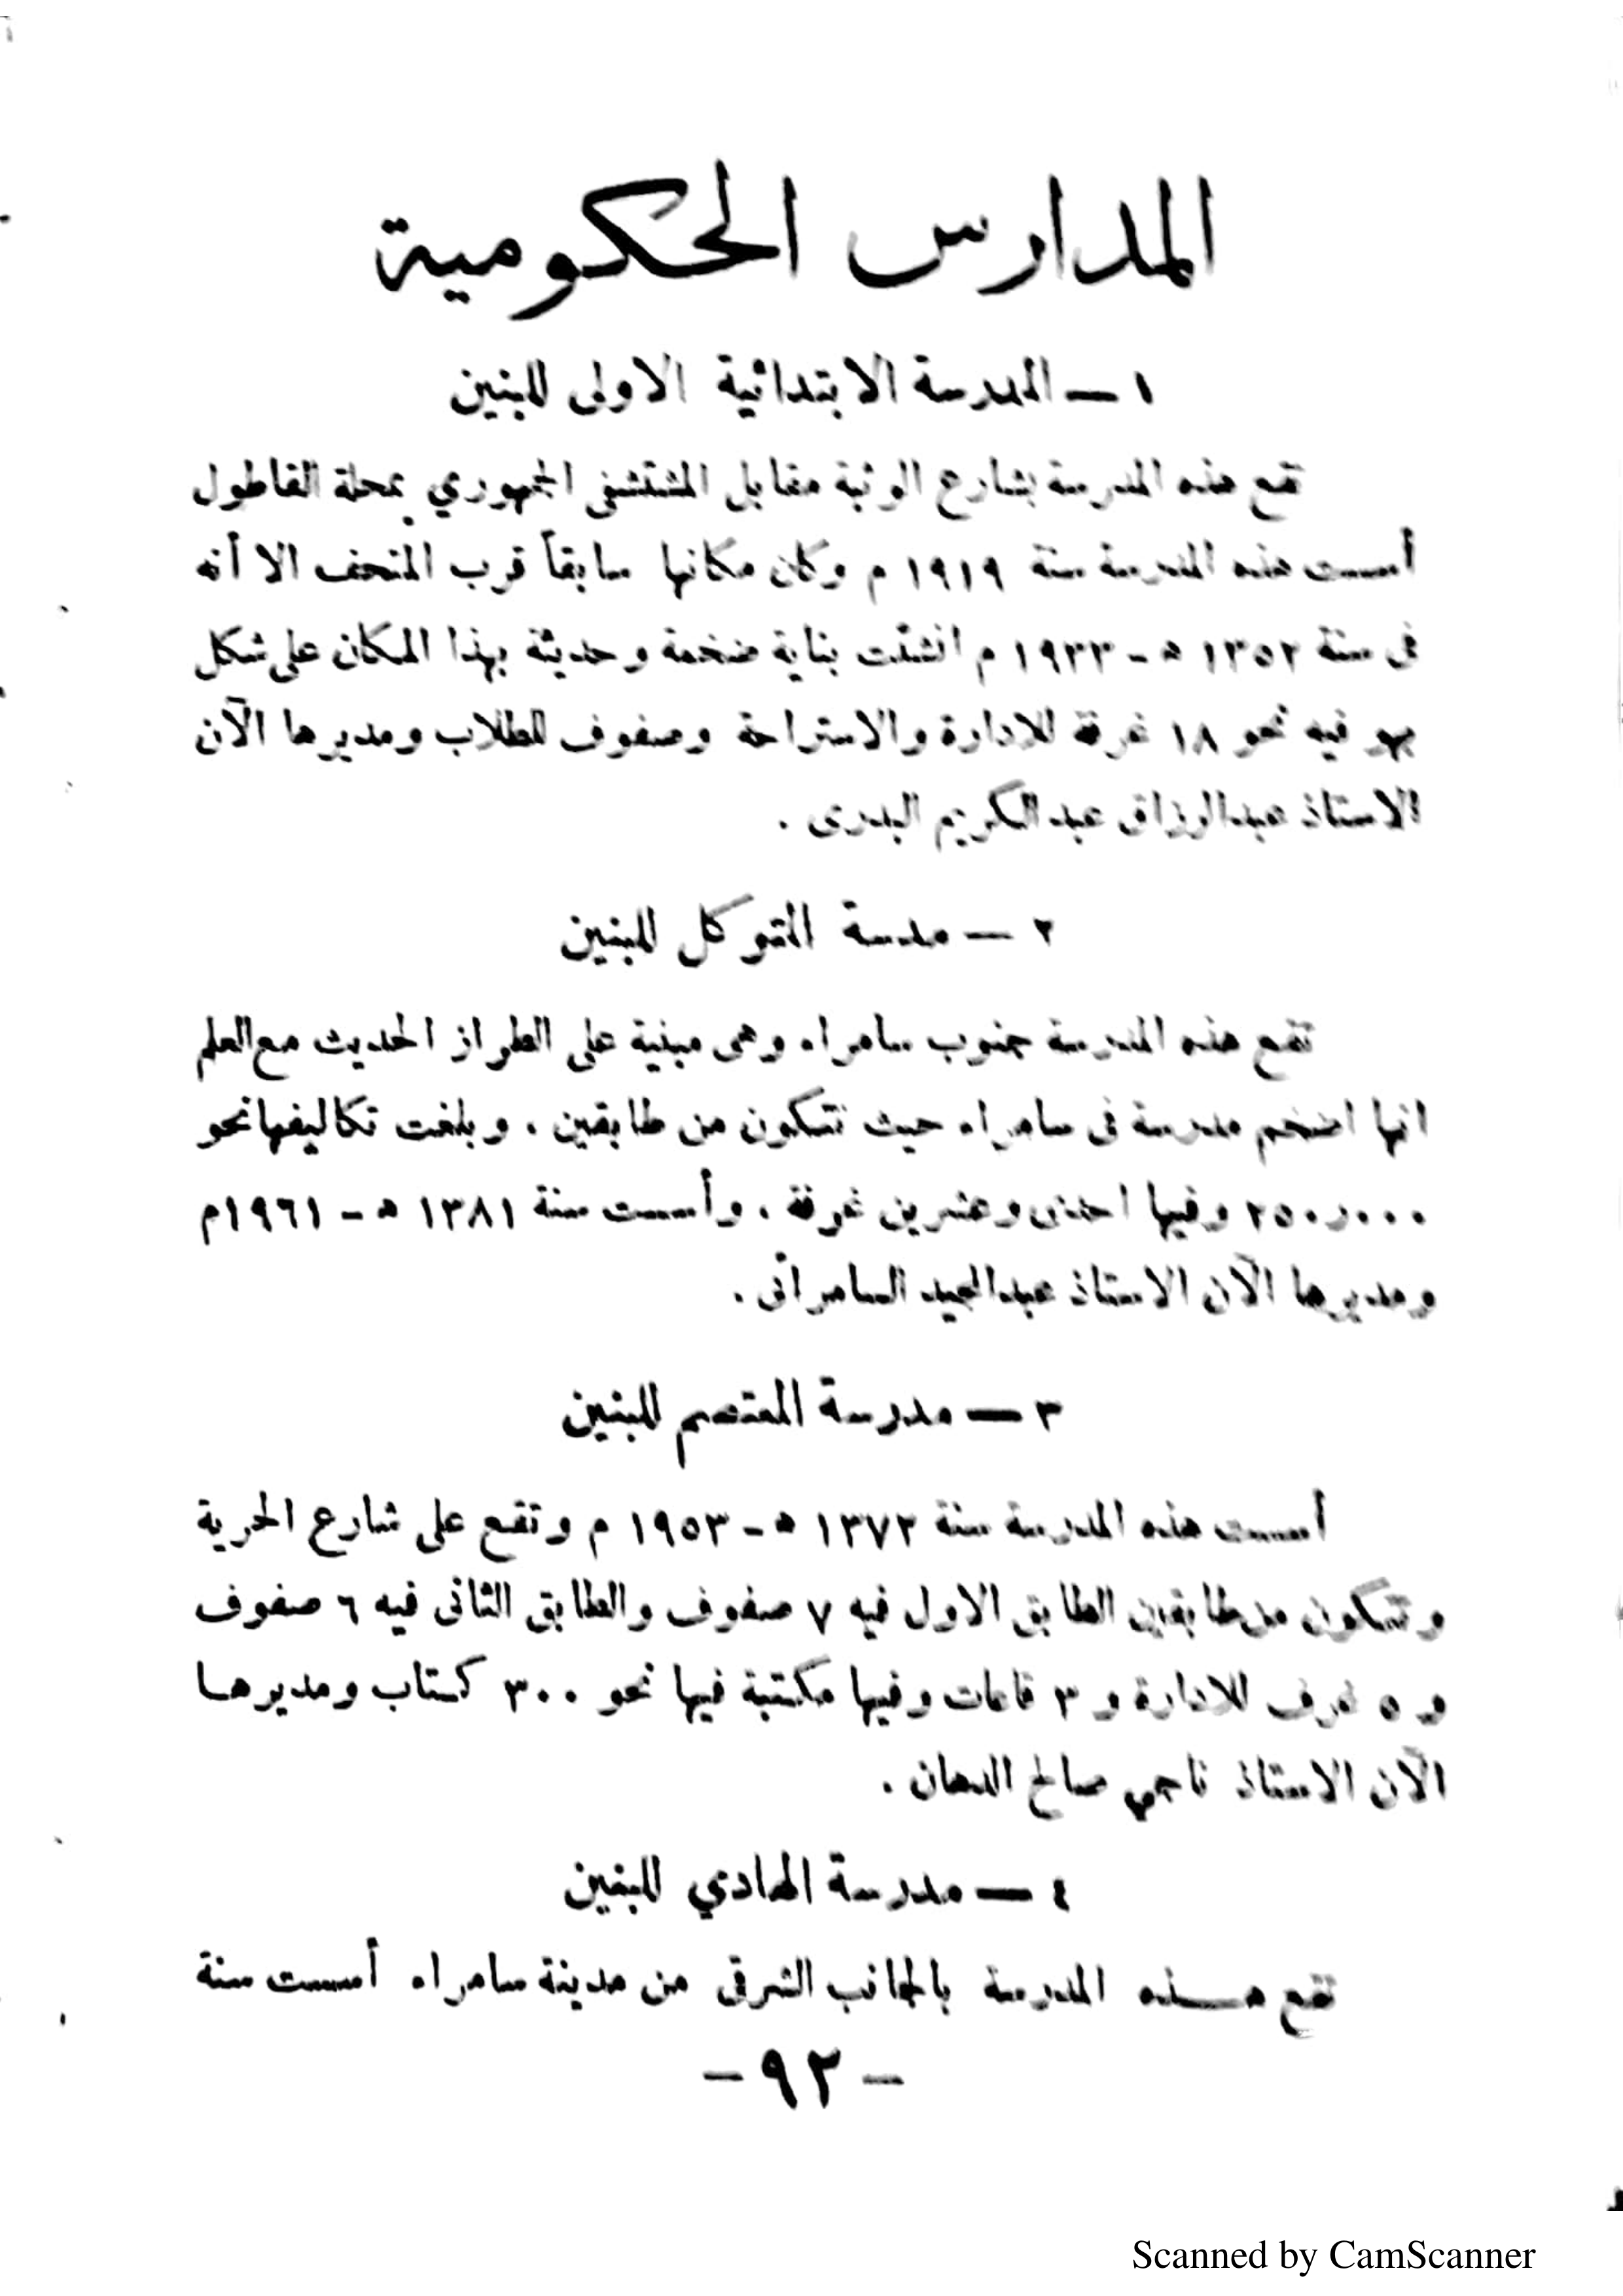 المدارس الحكومية
١ — المدرسة الابتدائية الاولى للبنين
تقع هذه المدرسة بشارع الوثبة مقابل المشتشفى الجمهوري بمحلة القاطول
أسست هذه المدرسة سنة ١٩١٩ م وكان مكانها سابقاً قرب المتحف الا أنه
فى سنة ١٣٥٢ ه‍ - ١٩٣٣ م انشئت بناية ضخمة وحديثة بهذا المكان على شكل
بهو فيه نحو ١٨ غرفة للادارة والاستراحة وصفوف للطلاب ومديرها الآن
الاستاذ عبدالرزاق عبدالكريم البدرى .
٢ — مدسة المتوكل للبنين
تقع هذه المدرسة جنوب سامراء وهى مبنية على الطراز الحديث مع العلم
انها اضخم مدرسة فى سامراء حيث تتكون من طابقين . وبلغت تكاليفها نحو
٢٥٠٫٠٠٠ وفيها احدى وعشرين غرفة . وأسست سنة ١٣٨١ ه‍ - ١٩٦١م
ومديرها الآن الاستاذ عبدالمجيد السامرائى .
٣ — مدرسة المعتصم للبنين
أسست هذه المدرسة سنة ١٣٧٢ ه‍ - ١٩٥٣ م وتقع على شارع الحرية
وتتكون من طابقين الطابق الاول فيه ٧ صفوف والطابق الثانى فيه ٦ صفوف
و ٥ غرف للادارة و ٣ قاعات وفيها مكتبة فيها نحو ٣٠٠ كتاب ومديرها
الآن الاستاذ ناجي صالح الدهان .
٤ — مدرسة الهادي للبنين
تقع هذه المدرسة بالجانب الشرقى من مدينة سامراء أسست سنة
- ٩٢ -
Scanned by CamScanner